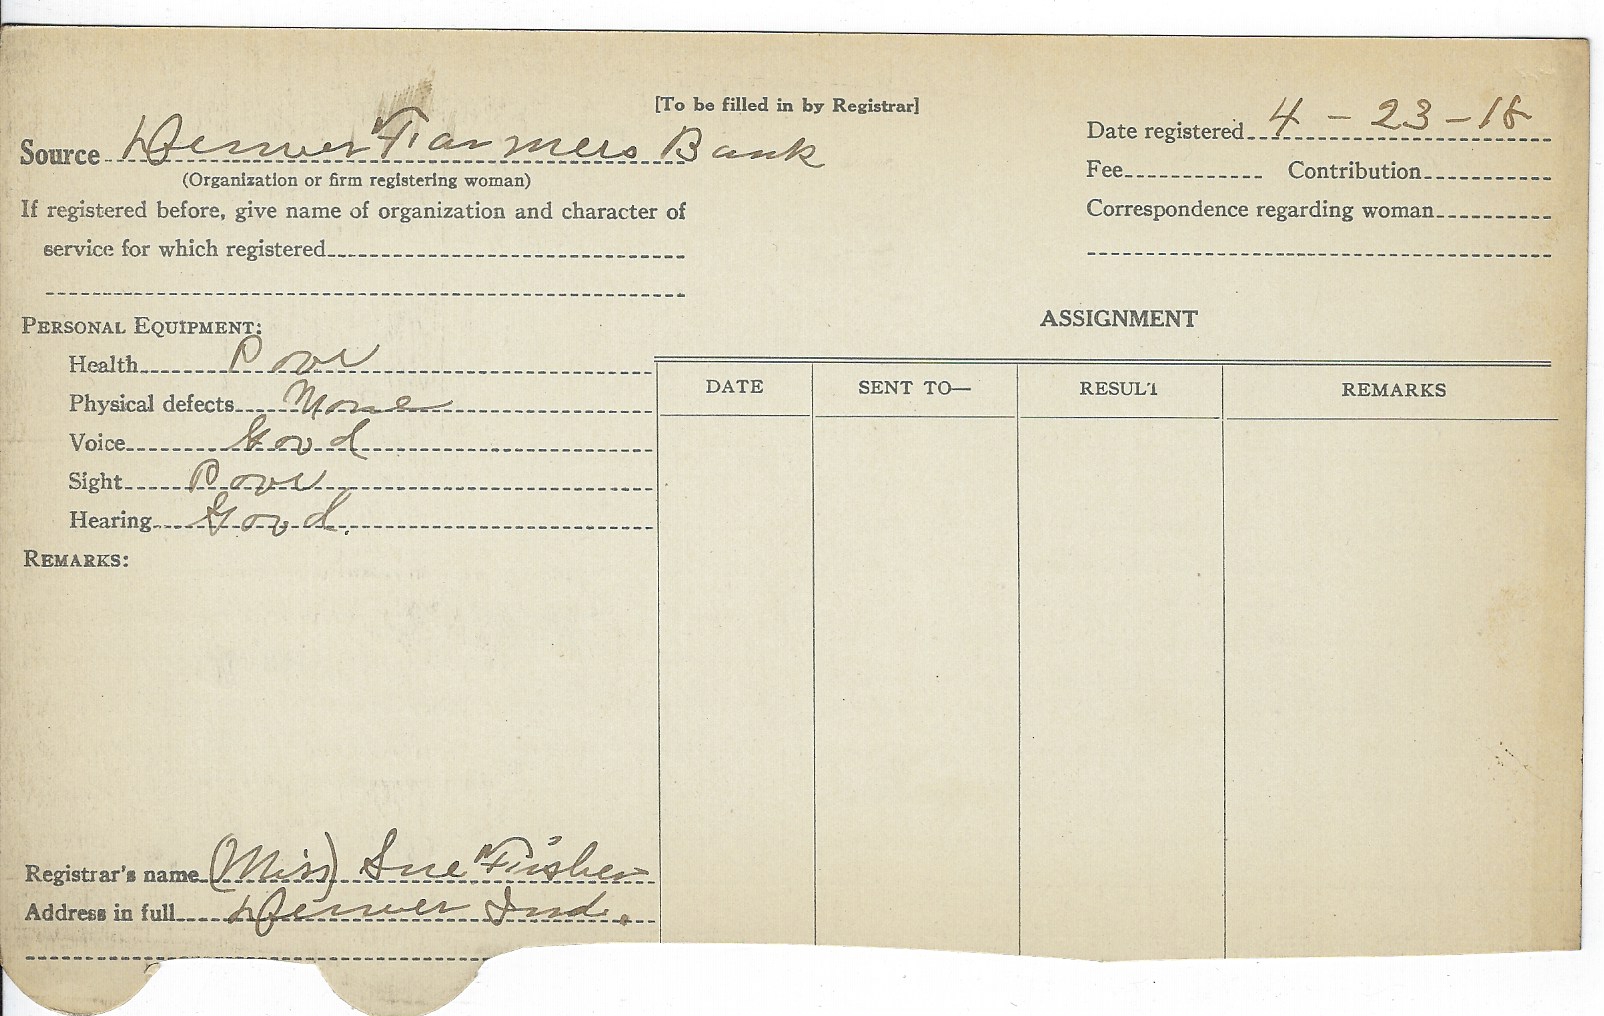 [To be filled in by Registrar]
Source Denver Farmers Bank
(Organization or firm registering woman)
If registered before, give name of organization and character of
service for which registered
Date registered 4-23-18
Fee Contribution
Correspondence regarding woman
PERSONAL EQUIPMENT:
Health Poor
Physical defects None
Voice Good
Sight Poor
Hearing Good.
REMARKS:
ASSIGNMENT
DATE SENT TO— RESULT REMARKS
Registrar's name (Miss) Sue Fisher
Address in full Denver Ind.